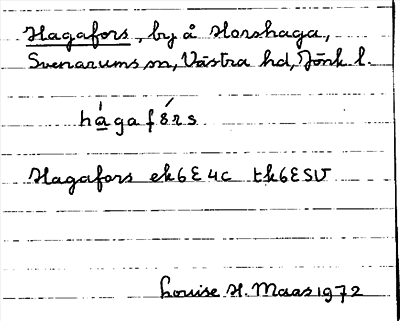 Hagafors, by å Horshaga,
Svenarums sn, Västra hd, Jönk l.
hágafórs
Hagafors ek6E4c tk6E5V
Louise H. Maas 1972